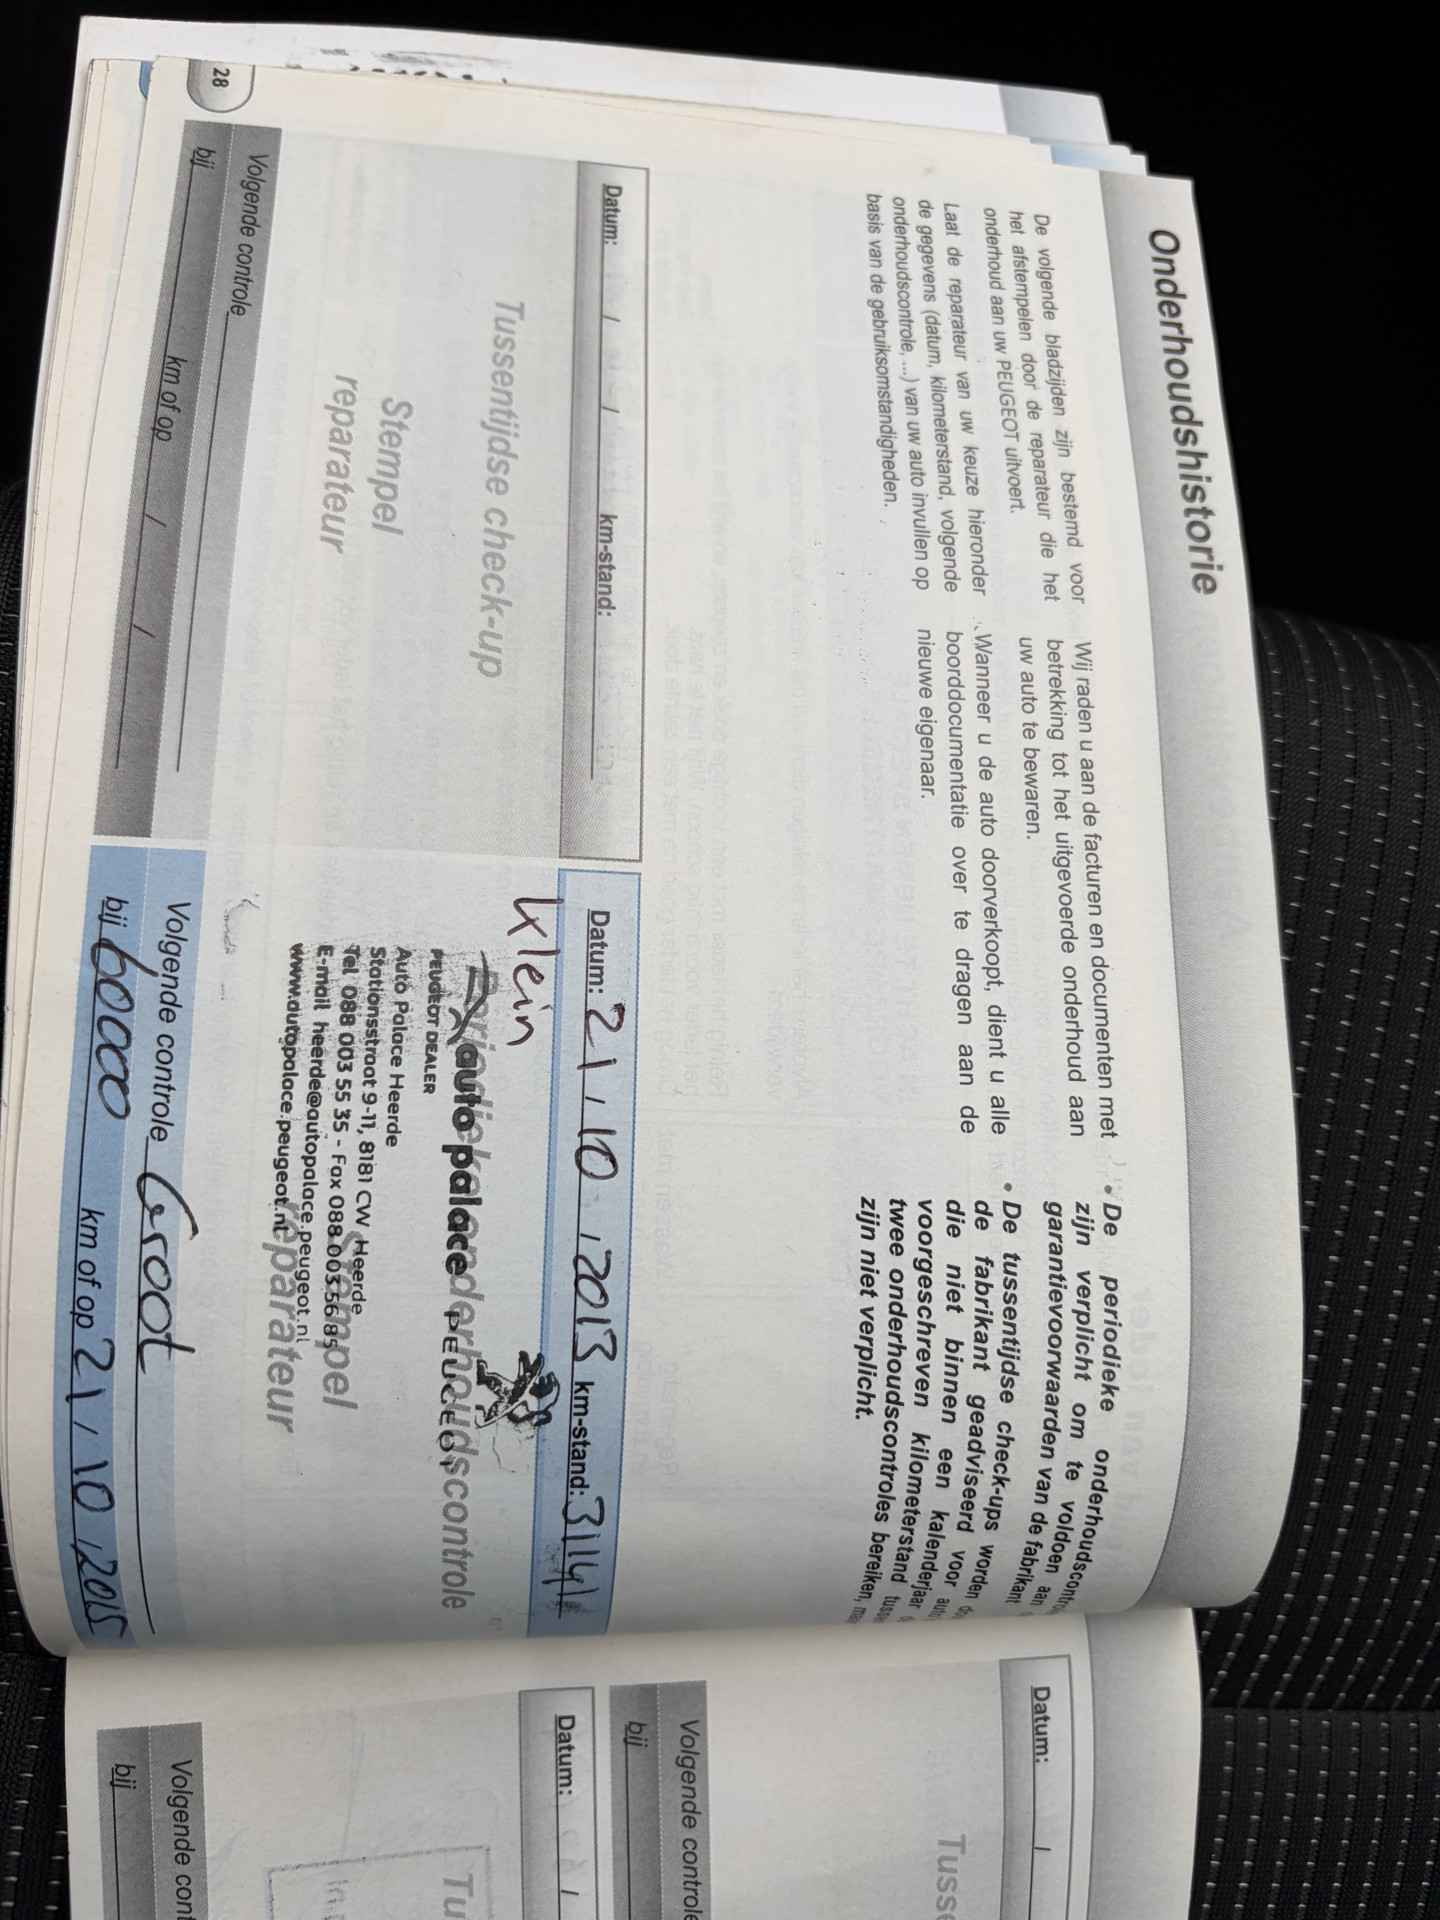 Onderhoudshistorie
De volgende bladzijden zijn bestemd voor
het afstempelen door de reparateur die het
onderhoud aan uw PEUGEOT uitvoert.
Laat de reparateur van uw keuze hieronder
de gegevens (datum, kilometerstand, volgende
onderhoudscontrole, ...) van uw auto invullen op
basis van de gebruiksomstandigheden.
Wij raden u aan de facturen en documenten met
betrekking tot het uitgevoerde onderhoud aan
uw auto te bewaren.
Wanneer u de auto doorverkoopt, dient u alle
boorddocumentatie over te dragen aan de
nieuwe eigenaar.
• De periodieke onderhoudscontro
zijn verplicht om te voldoen aan
garantievoorwaarden van de fabrikant
• De tussentijdse check-ups worden
de fabrikant geadviseerd voor
die niet binnen een kalenderjaar
voorgeschreven kilometerstand
twee onderhoudscontroles bereiken,
zijn niet verplicht.
Datum: / / km-stand:
Tussentijdse check-up
Stempel
reparateur
Volgende controle
bij km of op / /
28
Datum: 21 / 10 / 2013 km-stand: 31141
klein
Periodieke onderhoudscontrole
auto palace PEUGEOT
PEUGEOT DEALER
Auto Palace Heerde
Stationsstraat 9-11, 8181 CW Heerde
Tel 088 003 55 35 - Fax 088 003 56 85
E-mail heerde@autopalace.peugeot.nl
www.autopalace.peugeot.nl
Stempel
reparateur
Volgende controle Groot
bij 60000 km of op 21 / 10 / 2015
Datum: /
Tuss
Volgende controle
bij
Datum: /
Tu
Volgende cont
bij